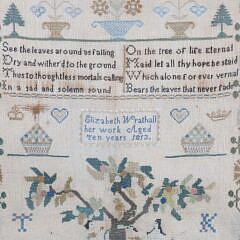 See the leaves around us falling
Dry and wither'd to the ground
Thus to thoughtless mortals calling
In a sad and solemn sound
On the tree of life Eternal
Maid let all thy hope be staid
Which alone for ever vernal
Bears the leaves that never fade
Elizabeth Wrathall
her work Aged
ten years 1812.
T K